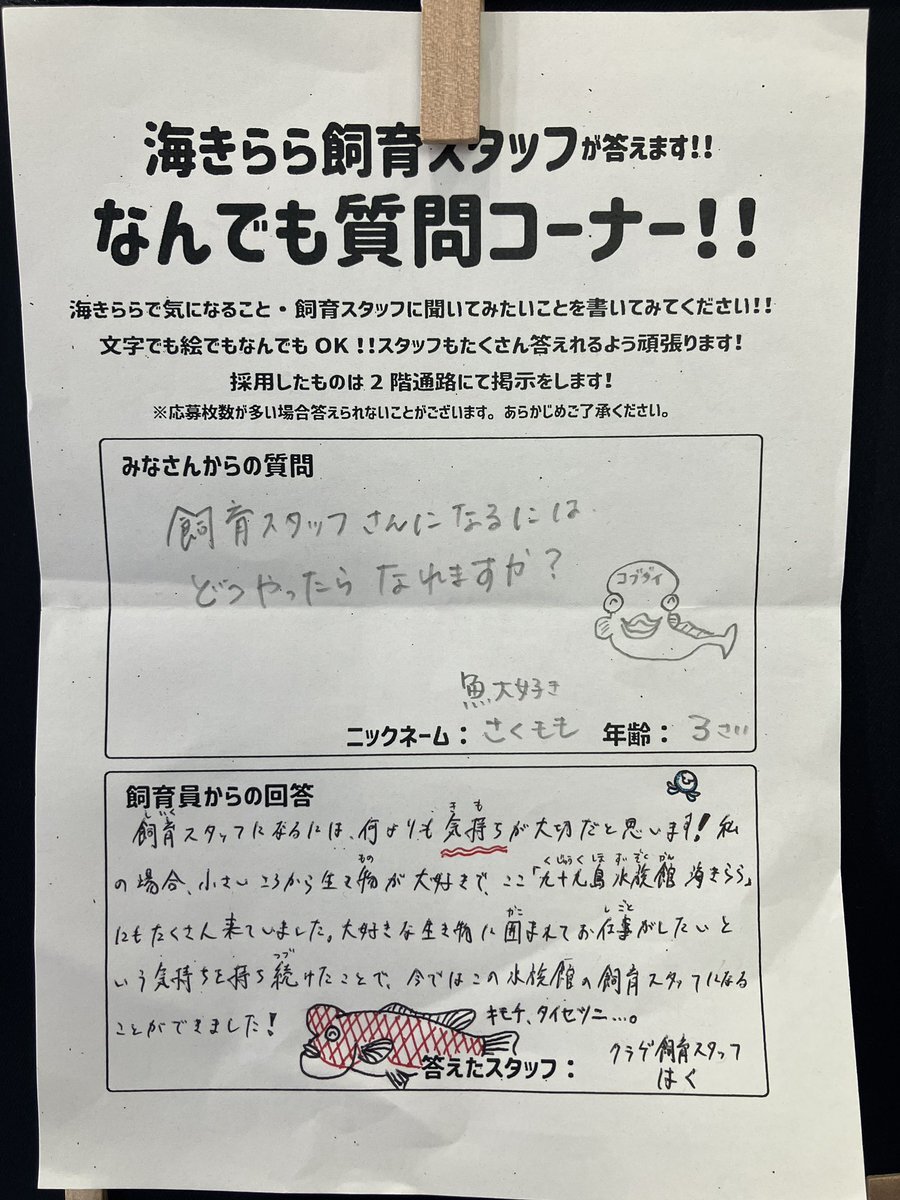 海きらら飼育スタッフが答えます!!
なんでも質問コーナー!!
海きららで気になること・飼育スタッフに聞いてみたいことを書いてみてください!!
文字でも絵でもなんでも OK !!スタッフもたくさん答えれるよう頑張ります!
採用したものは 2 階通路にて掲示をします!
※応募枚数が多い場合答えられないことがございます。あらかじめご了承ください。
みなさんからの質問
飼育スタッフさんになるには
どうやったらなれますか?
コブダイ
魚大好き
ニックネーム: さくもも 年齢: 3さい
飼育員からの回答
しいく き も
飼育スタッフになるには、何よりも気持ちが大切だと思います! 私
もの くじゅうくしま すいぞくかん
の場合、小さいころから生き物が大好きで、ここ「九十九島水族館海きらら」
かこ しごと
にもたくさん来ていました。大好きな生き物に囲まれてお仕事がしたいと
つづ
いう気持ちを持ち続けたことで、今ではこの水族館の飼育スタッフになる
ことができました!
キモチ、タイセツニ…。
答えたスタッフ: クラゲ飼育スタッフ
はく